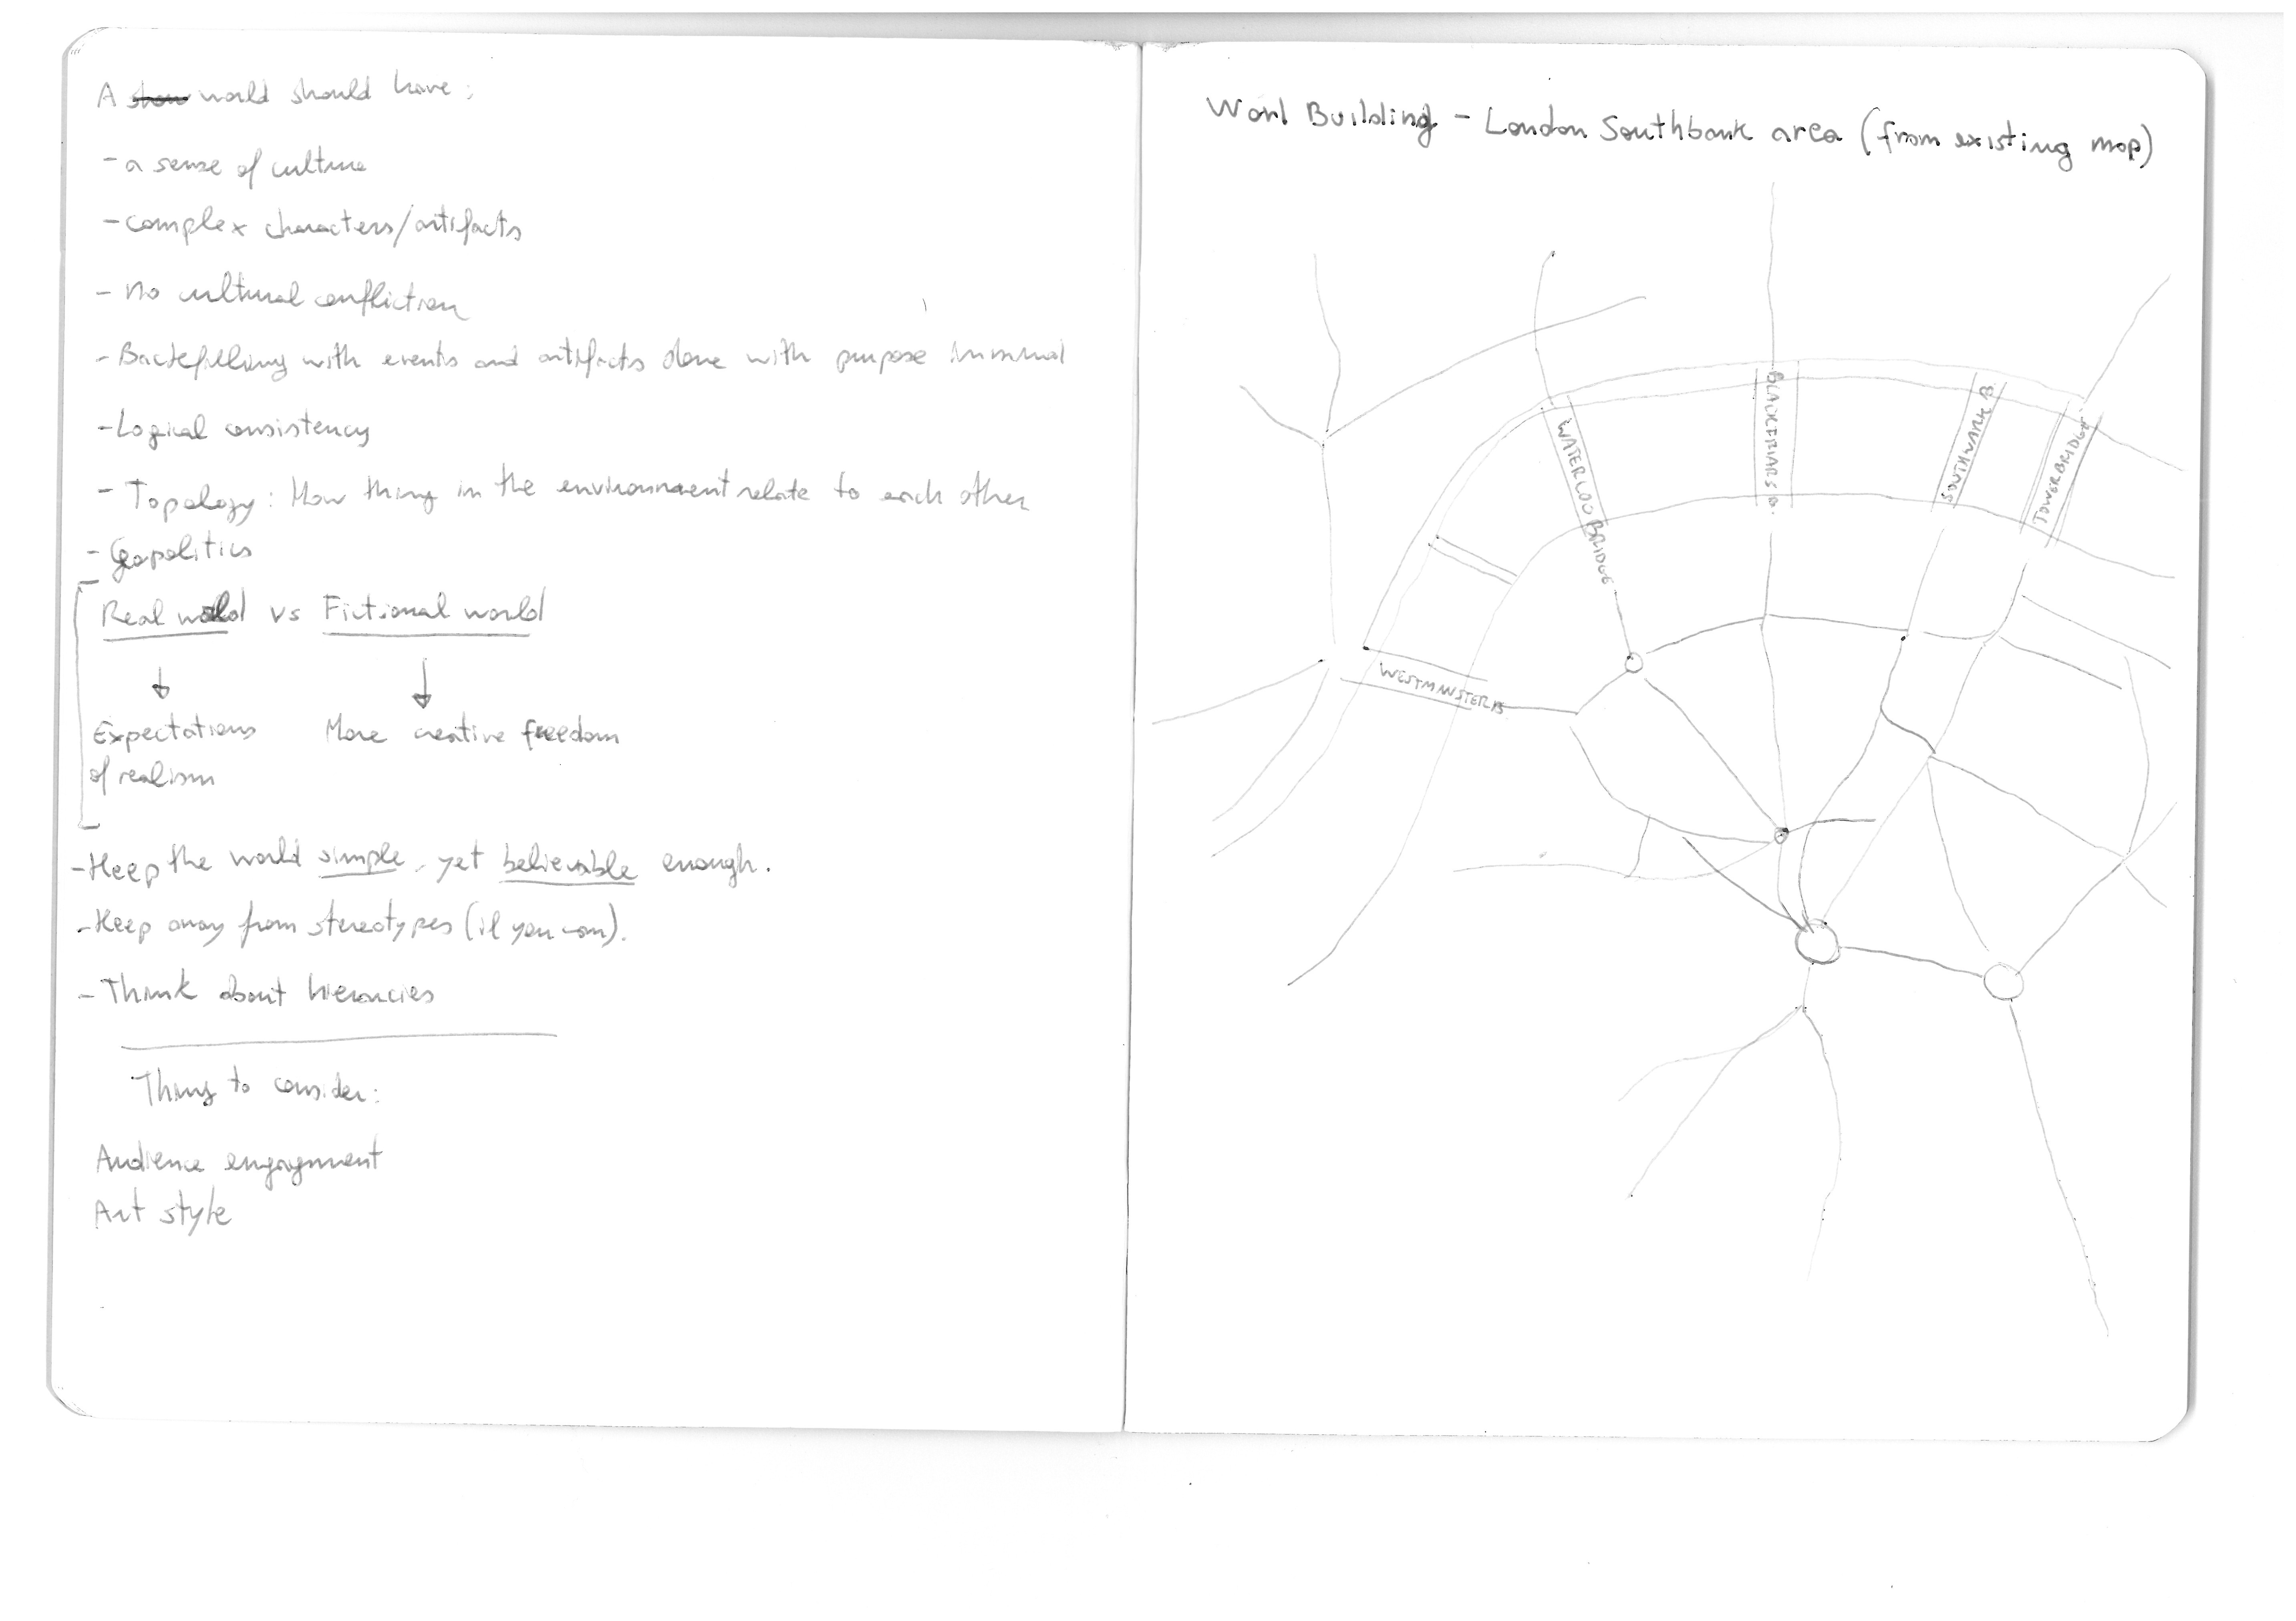 A show world should have:
- a sense of culture
- complex characters/artifacts
- no cultural confliction
- Backfilling with events and artifacts done with purpose in mind
- Logical consistency
- Topology: How thing in the environment relate to each other
- Geopolitics
Real world vs Fictional world
Expectations More creative freedom
of realism
- Keep the world simple, yet believable enough.
- Keep away from stereotypes (if you can).
- Think about hierarcies
Things to consider:
Audience engagment
Art style
Worl Building - London Southbank area (from existing map)
WATERLOO BRIDGE
BLACKFRIARS B.
SOUTHWARK B
TOWERBRIDGE
WESTMINSTER B